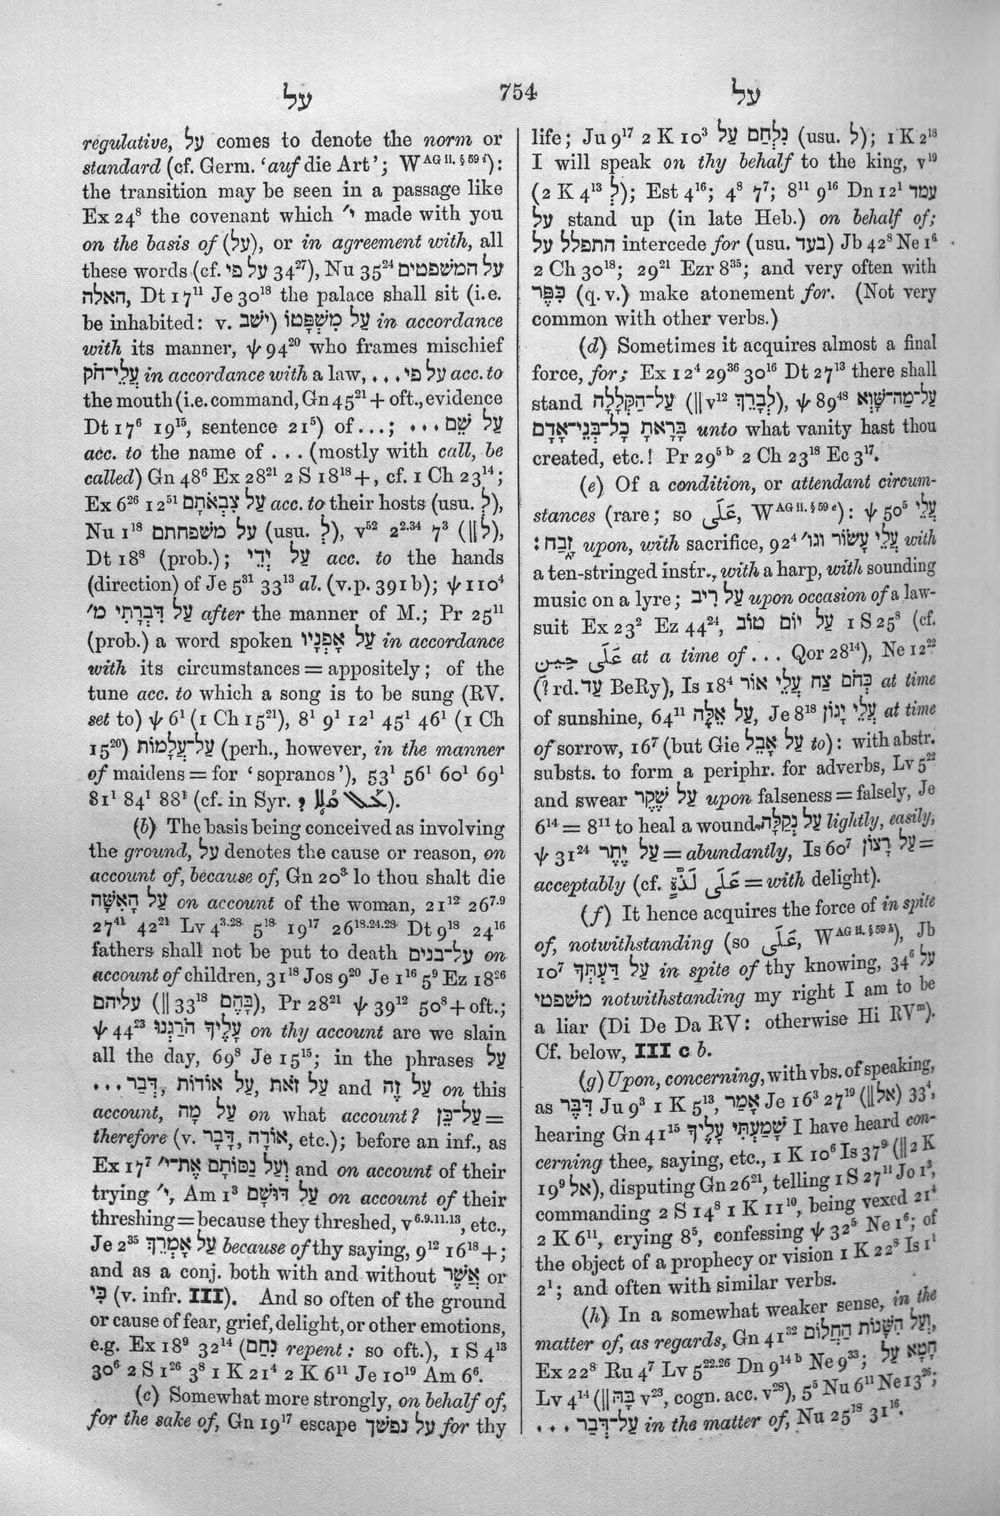 על 754 על
regulative, על comes to denote the norm or
standard (cf. Germ. ‘auf die Art’; W AG ii. § 59 f):
the transition may be seen in a passage like
Ex 24⁸ the covenant which י׳ made with you
on the basis of (על), or in agreement with, all
these words (cf. על פי 34²⁷), Nu 35²⁴ על המשפטים
האלה, Dt 17¹¹ Je 30¹⁸ the palace shall sit (i.e.
be inhabited: v. ישׁב) עַל מִשְׁפָּטוֹ in accordance
with its manner, ψ 94²⁰ who frames mischief
עֲלֵי־חֹק in accordance with a law, ... עַל פִּי acc. to
the mouth (i.e. command, Gn 45²¹ + oft., evidence
Dt 17⁶ 19¹⁵, sentence 21⁵) of...; ... עַל שֵׁם
acc. to the name of ... (mostly with call, be
called) Gn 48⁶ Ex 28²¹ 2 S 18¹⁸ +, cf. 1 Ch 23¹⁴;
Ex 6²⁶ 12⁵¹ עַל צִבְאֹתָם acc. to their hosts (usu. לְ),
Nu 1¹⁸ על משפחתם (usu. לְ), v⁵² 2²·³⁴ 7³ (‖לְ),
Dt 18⁸ (prob.); עַל יְדֵי acc. to the hands
(direction) of Je 5³¹ 33¹³ al. (v.p. 391 b); ψ 110⁴
עַל דִּבְרָתִי מ׳ after the manner of M.; Pr 25¹¹
(prob.) a word spoken עַל אָפְנָיו in accordance
with its circumstances = appositely; of the
tune acc. to which a song is to be sung (RV.
set to) ψ 6¹ (1 Ch 15²¹), 8¹ 9¹ 12¹ 45¹ 46¹ (1 Ch
15²⁰) עַל־עֲלָמוֹת (perh., however, in the manner
of maidens = for ‘sopranos’), 53¹ 56¹ 60¹ 69¹
81¹ 84¹ 88¹ (cf. in Syr. ).
(b) The basis being conceived as involving
the ground, על denotes the cause or reason, on
account of, because of, Gn 20³ lo thou shalt die
עַל הָאִשָּׁה on account of the woman, 21¹² 26⁷·⁹
27⁴¹ 42²¹ Lv 4³·²⁸ 5¹⁸ 19¹⁷ 26¹⁸·²⁴·²⁸ Dt 9¹⁸ 24¹⁶
fathers shall not be put to death על־בנים on
account of children, 31¹⁸ Jos 9²⁰ Je 1¹⁶ 5⁹ Ez 18²⁶
עליהם (‖ 33¹⁸ בָּהֶם), Pr 28²¹ ψ 39¹² 50⁸ + oft.;
ψ 44²³ עָלֶיךָ הֹרַגְנוּ on thy account are we slain
all the day, 69⁸ Je 15¹⁵; in the phrases עַל
דְּבַר, עַל אֹדוֹת, עַל דְּבַר... and עַל זֹאת, עַל זֶה on this
account, עַל מָה on what account? עַל־כֵּן =
therefore (v. דָּבָר, אוֹדָה, etc.); before an inf., as
Ex 17⁷ וְעַל נַסּוֹתָם אֶת־י׳ and on account of their
trying י׳, Am 1³ עַל דּוּשָׁם on account of their
threshing = because they threshed, v⁶·⁹·¹¹·¹³, etc.,
Je 2³⁵ עַל אָמְרֵךְ because of thy saying, 9¹² 16¹⁸ +;
and as a conj. both with and without אֲשֶׁר or
כִּי (v. infr. III). And so often of the ground
or cause of fear, grief, delight, or other emotions,
e.g. Ex 18⁹ 32¹⁴ (נִחַם repent: so oft.), 1 S 4¹³
30⁶ 2 S 1²⁶ 3⁸ 1 K 21⁴ 2 K 6¹¹ Je 10¹⁹ Am 6⁶.
(c) Somewhat more strongly, on behalf of,
for the sake of, Gn 19¹⁷ escape על נפשך for thy
life; Ju 9¹⁷ 2 K 10³ נִלְחַם עַל (usu. לְ); 1 K 2¹⁸
I will speak on thy behalf to the king, v¹⁹
(2 K 4¹³ לְ); Est 4¹⁶; 4⁸ 7⁷; 8¹¹ 9¹⁶ Dn 12¹ עמד
על stand up (in late Heb.) on behalf of;
התפלל על intercede for (usu. בעד) Jb 42⁸ Ne 1⁶
2 Ch 30¹⁸; 29²¹ Ezr 8³⁵; and very often with
כִּפֶּר (q.v.) make atonement for. (Not very
common with other verbs.)
(d) Sometimes it acquires almost a final
force, for; Ex 12⁴ 29³⁶ 30¹⁶ Dt 27¹³ there shall
stand עַל־הַקְּלָלָה (‖ v¹² לְבָרֵךְ), ψ 89⁴⁸ עַל־מַה־שָּׁוְא
בָּרָאתָ כָל־בְּנֵי־אָדָם unto what vanity hast thou
created, etc.! Pr 29⁵ ᵇ 2 Ch 23¹⁸ Ec 3¹⁷.
(e) Of a condition, or attendant circum-
stances (rare; so عَلَى, W AG ii. § 59 e): ψ 50⁵ עֲלֵי
זָבַח׃ upon, with sacrifice, 92⁴ עֲלֵי עָשׂוֹר וגו׳ with
a ten-stringed instr., with a harp, with sounding
music on a lyre; עַל רִיב upon occasion of a law-
suit Ex 23² Ez 44²⁴, עַל יוֹם טוֹב 1 S 25⁸ (cf.
عَلَى حِينِ at a time of ... Qor 28¹⁴), Ne 12²²
(? rd. עַד BeRy), Is 18⁴ כְּחֹם צַח עֲלֵי אוֹר at time
of sunshine, 64¹¹ עַל אֵלֶּה, Je 8¹⁸ עֲלֵי יָגוֹן at time
of sorrow, 16⁷ (but Gie עַל אָבֵל to): with abstr.
substs. to form a periphr. for adverbs, Lv 5²²
and swear עַל שֶׁקֶר upon falseness = falsely, Je
6¹⁴ = 8¹¹ to heal a wound עַל נְקַלָּה lightly, easily,
ψ 31²⁴ עַל יֶתֶר = abundantly, Is 60⁷ עַל רָצוֹן =
acceptably (cf. عَلَى لَذَّةٍ = with delight).
(f) It hence acquires the force of in spite
of, notwithstanding (so عَلَى, W AG ii. § 59 h), Jb
10⁷ עַל דַּעְתְּךָ in spite of thy knowing, 34⁶ על
משפטי notwithstanding my right I am to be
a liar (Di De Da RV: otherwise Hi RVᵐ).
Cf. below, III c b.
(g) Upon, concerning, with vbs. of speaking,
as דִּבֶּר Ju 9³ 1 K 5¹³, אָמַר Je 16³ 27¹⁹ (‖אל) 33⁴,
hearing Gn 41¹⁵ שָׁמַעְתִּי עָלֶיךָ I have heard con-
cerning thee, saying, etc., 1 K 10⁶ Is 37⁹ (‖ 2 K
19⁹ אֶל), disputing Gn 26²¹, telling 1 S 27¹¹ Jo 1³,
commanding 2 S 14⁸ 1 K 11¹⁰, being vexed 21⁴
2 K 6¹¹, crying 8⁵, confessing ψ 32⁵ Ne 1⁶; of
the object of a prophecy or vision 1 K 22⁸ Is 1¹
2¹; and often with similar verbs.
(h) In a somewhat weaker sense, in the
matter of, as regards, Gn 41³² וְעַל הִשָּׁנוֹת הַחֲלוֹם,
Ex 22⁸ Ru 4⁷ Lv 5²²·²⁶ Dn 9¹⁴ ᵇ Ne 9³³; חָטָא עַל
Lv 4¹⁴ (‖ בָּהּ v²³, cogn. acc. v²⁸), 5⁵ Nu 6¹¹ Ne 13²⁶;
... עַל־דְּבַר in the matter of, Nu 25¹⁸ 31¹⁶.